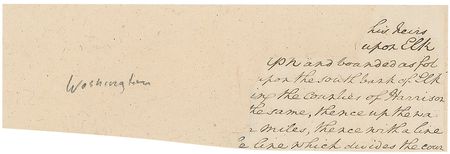 his heirs
upon Elk
and bounded as fol
Washington
upon the south bank of Elk
in the Counties of Harrison
the same, thence up the
miles, thence with a line
line which divides the coun